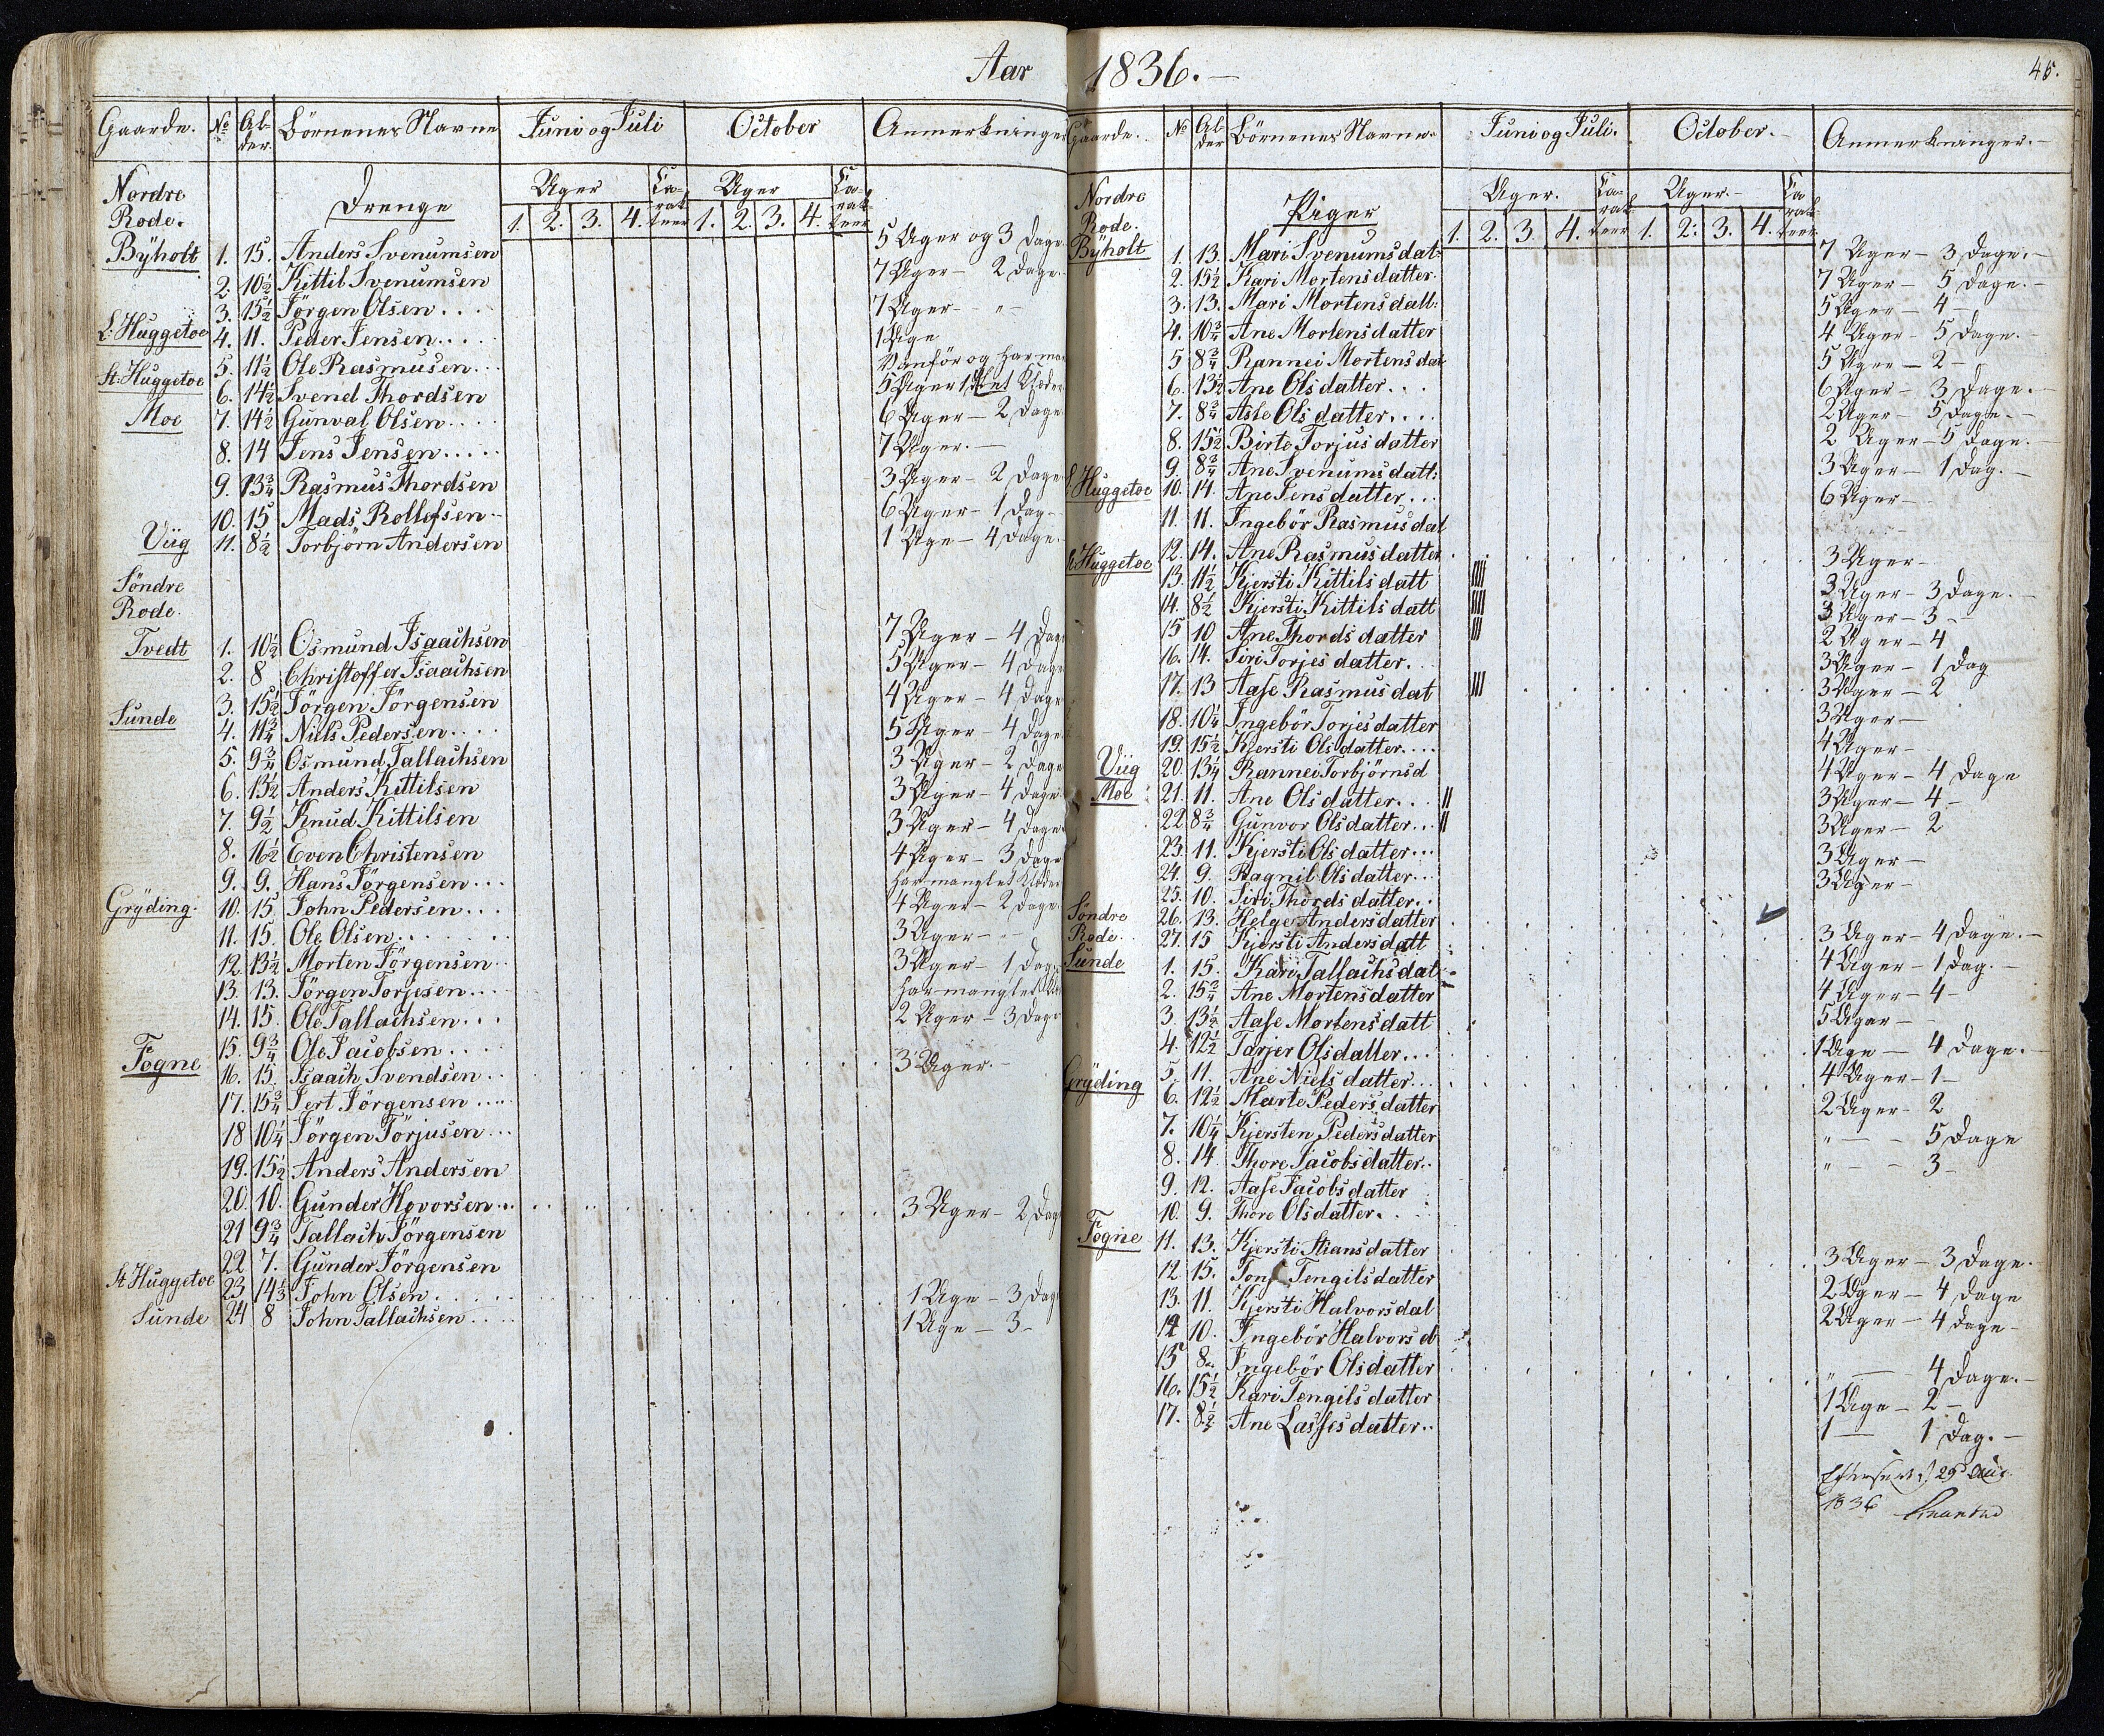 Aar 1836.
45.
Gaarde. No Al- der. Börnenes Navne Juni og Juli October Anmerkninger
Nordre Rode. Drenge Uger Ca- rak- teer Uger Ca- rak- teer
1. 2. 3. 4. 1. 2. 3. 4.
Byholt 1. 15. Anders Svenumsen 5 Uger og 3 Dage
2. 10½ Kittil Svenumsen 7 Uger - 2 Dage.
3. 15½ Jörgen Olsen... 7 Uger - "
L. Huggetoe 4. 11. Peder Jensen.... 1 Uge
5. 11½ Ole Rasmusen... Vanför og har man
St. Huggetoe 6. 14½ Svend Thordsen 5 Uger 1, Klæder
Moe 7. 14½ Gunval Olsen.... 6 Uger - 2 Dage
8. 14 Jens Jensen..... 7 Uger. -
9. 13¾ Rasmus Thordsen 3 Uger - 2 Dage
10. 15 Mads Rollefsen.. 6 Uger - 1 Dag -
Viig 11. 8½ Torbjörn Andersen 1 Uge - 4 Dage.
Söndre
Rode.
Tvedt 1. 10½ Osmund Isaachsen 7 Uger - 4 Dag
2. 8 Christoffer Isaachsen 5 Uger - 4 Dage
3. 15½ Jörgen Jörgensen 4 Uger - 4 Dage
Sunde 4. 11¾ Niels Pedersen.... 5 Uger - 4 Dage
5. 9¾ Osmund Tallachsen 3 Uger - 2 Dage
6. 13½ Anders Kittilsen 3 Uger - 4 Dage
7. 9½ Knud Kittilsen 3 Uger - 4 Dage
8. 16½ Even Christensen 4 Uger - 3 Dage
9. 9. Hans Jörgensen... Har manglet Klæder
Gryding. 10. 15 John Pedersen... 4 Uger - 2 Dage
11. 15. Ole Olsen...... 3 Uger -
12. 13½ Morten Jörgensen.. 3 Uger - 1 Dag
13. 13. Jörgen Torjesen... Har manglet Kl
14. 15. Ole Tallachsen... 2 Uger - 3 Dage
15. 9¾ Ole Jacobsen....
Fogne 16. 15. Isaach Svendsen.. 3 Uger. -
17. 15¾ Jert Jörgensen.....
18 10¼ Jörgen Torjusen...
19. 15½ Anders Andersen
20. 10. Gunder Hovorsen... 3 Uger - 2 Dag
21 9¾ Tallach Jörgensen
22 7. Gunder Jörgensen
St Huggetoe 23 14⅓ John Olsen.... 1 Uge - 3 Dag
Sunde 24 8 John Tallachsen.... 1 Uge - 3 -
Gaarde. No Al- der Börnenes Navne. Juni og Juli. October. Anmerkninger.
Nordre Rode. Piger Uger. Ca- rak- teer Uger. Ca- rak- teer
1. 2. 3. 4. 1. 2. 3. 4.
Byholt 1. 13. Mari Svenumsdat: 7 Uger - 3 Dage. -
2. 15½ Kari Mortensdatter. 7 Uger - 5 Dage. -
3. 13. Mari Mortensdatt: 5 Uger - 4 -
4. 10¾ Ane Mortensdatter 4 Uger - 5 Dage. -
5 8¾ Rannei Mortensdat 5 Uger - 2 -
6. 13½ Ane Olsdatter... 6 Uger - 3 Dage. -
7. 8¾ Aslo Olsdatter.... 2 Uger - 5 Dage. -
8. 15½ Birte Torjusdatter 2 Uger - 5 Dage.
9. 8¾ Ane Svenumsdatt: 3 Uger - 1 Dag. -
L. Huggetoe 10. 14. Ane Jensdatter... 6 Uger -
11. 11. Ingebör Rasmusdat
12. 14. Ane Rasmusdatter 3 Uger -
St. Huggetoe 13. 11½ Kjersti Kittilsdatt 3 Uger - 3 Dage. -
14. 8½ Kjersti Kittilsdatt 3 Uger - 3 -
15 10 Ane Thordsdatter 2 Uger - 4
16. 14. Siri Torjesdatter.. 3 Uger - 1 Dag
17. 13 Aase Rasmusdat 3 Uger - 2
18. 10¼ Ingebör Torjesdatter 3 Uger -
19. 15½ Kjersti Olsdatter.... 4 Uger -
Viig 20. 13¼ Rannei Torbjörnsd 4 Uger - 4 Dage
Moe 21. 11. Ane Olsdatter... 3 Uger - 4 -
22 8¾ Gunvor Olsdatter... 3 Uger - 2
23. 11. Kjersti Olsdatter... 3 Uger -
24. 9. Ragnil Olsdatter... 3 Uger -
25. 10. Siri Thordsdatter..
Söndre 26. 13. Helge Andersdatter 3 Uger - 4 Dage. -
Rode. 27. 15 Kjersti Andersdatt 4 Uger - 1 Dag. -
Sunde 1. 15. Kari Tallachsdat 4 Uger - 4 -
2. 15¾ Ane Mortensdatter 5 Uger -
3. 13½ Aase Mortensdatt
4. 12½ Tarjer Olsdatter... 1 Uge - 4 Dage. -
Gryding 5. 11. Ane Nielsdatter... 4 Uger - 1 -
6. 12½ Marte Pedersdatter 2 Uger - 2
7. 10¼ Kjersten Pedersdatter " - - 5 Dage
8. 14 Thore Jacobsdatter.. " - - 3 -
9. 12. Aase Jacobsdatter
10. 9. Thore Olsdatter..
Fogne 11. 13. Kjersti Stiansdatter 3 Uger - 3 Dage.
12 15. Tone Tengilsdatter 2 Uger - 4 Dage
13. 11. Kjersti Halvorsdat 2 Uger - 4 Dage -
14 10. Ingebör Halvorsd
15 8. Ingebör Olsdatter " - 4 Dage. -
16. 15½ Kari Tengilsdatter 1 Uge - 2 -
17. 8½ Ane Lassesdatter.. 1 - 1 Dag. -
Efterseet d. 25 Aug.
1836